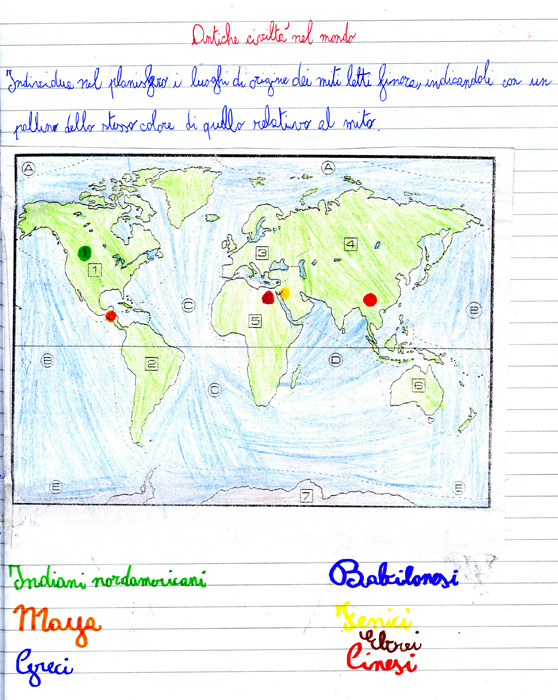 Antiche civiltà nel mondo
Individua nel planisfero i luoghi di origine dei miti letti finora, indicandoli con un
pallino dello stesso colore di quello relativo al mito.
A A
4
3
1
C
B
5
B 2 D
6
C
E E
7
Indiani nordamericani Babilonesi
Maya Fenici
Ebrei
Greci Cinesi